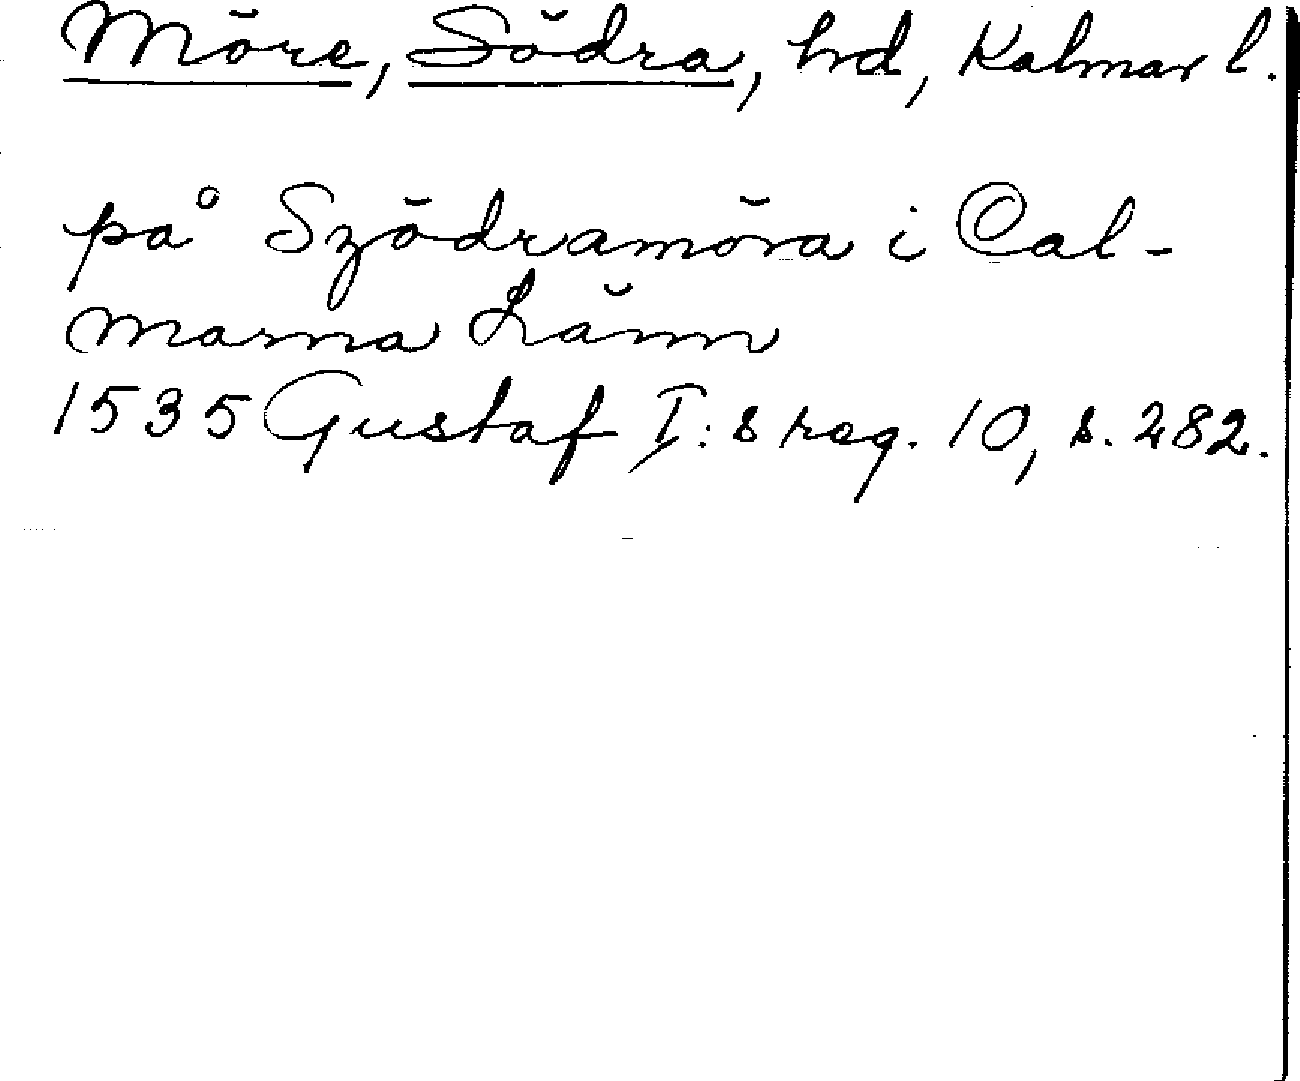 Möre, Södra, hd, Kalmar l.
på Szödramöra i Cal-
marna Länn
1535 Gustaf I:s reg. 10, s. 282.